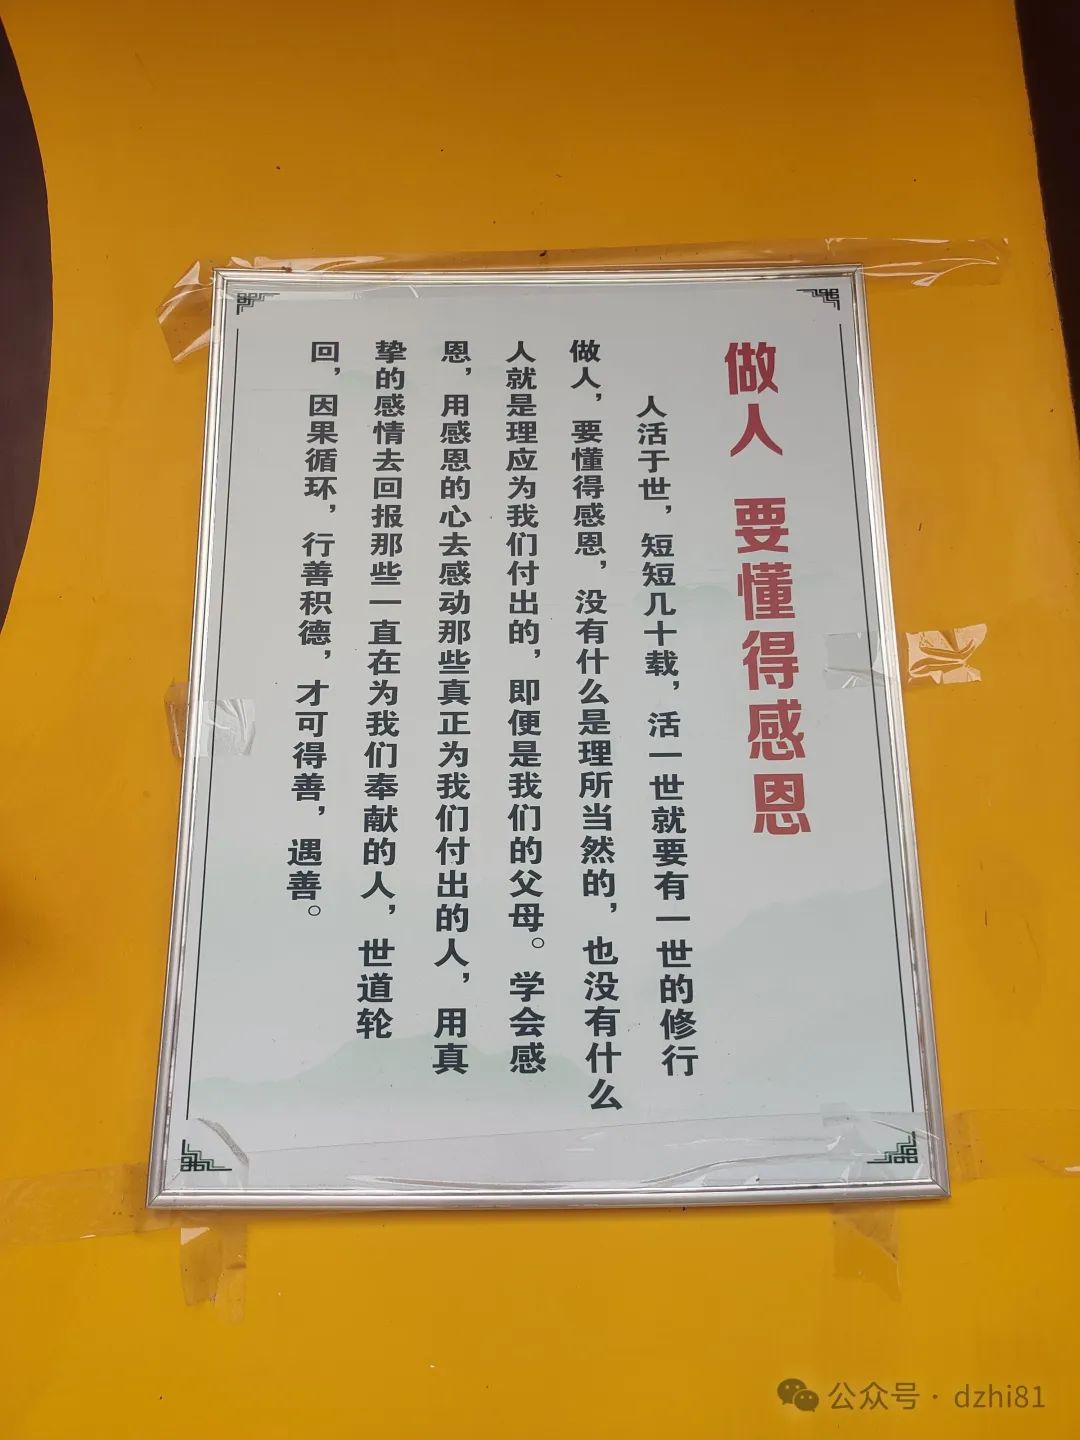 做人 要懂得感恩
人活于世，短短几十载，活一世就要有一世的修行
做人，要懂得感恩，没有什么是理所当然的，也没有什么
人就是理应为我们付出的，即便是我们的父母。学会感
恩，用感恩的心去感动那些真正为我们付出的人，用真
挚的感情去回报那些一直在为我们奉献的人，世道轮
回，因果循环，行善积德，才可得善，遇善。
公众号·dzhi81